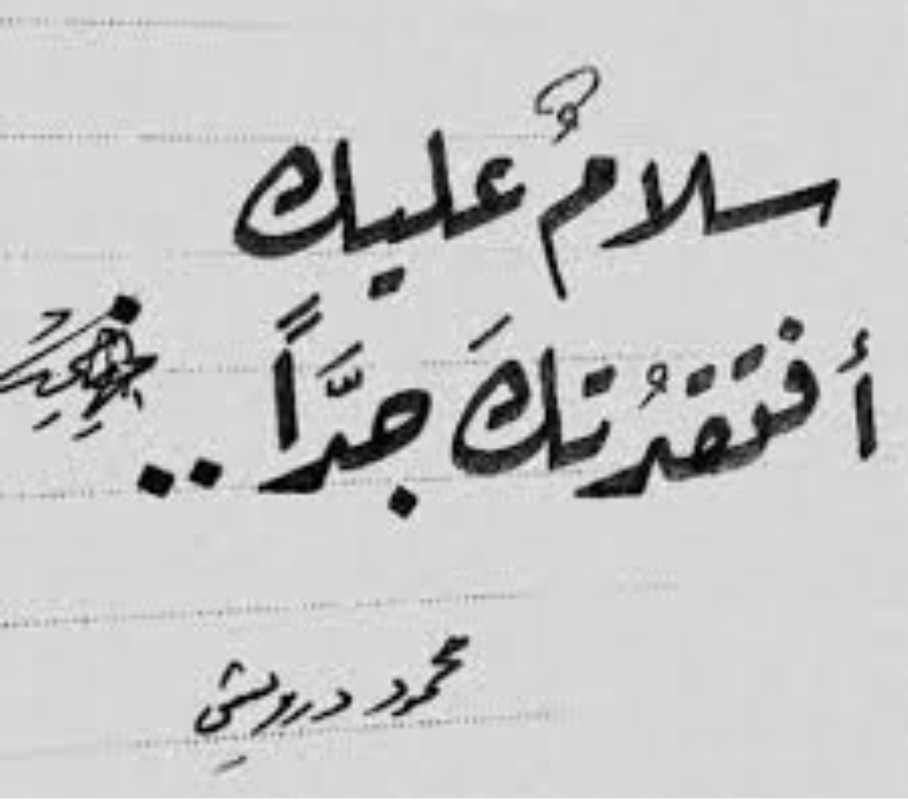 سلامٌ عليك
أفتقدُتكَ جدَّاً ..
محمود درويش